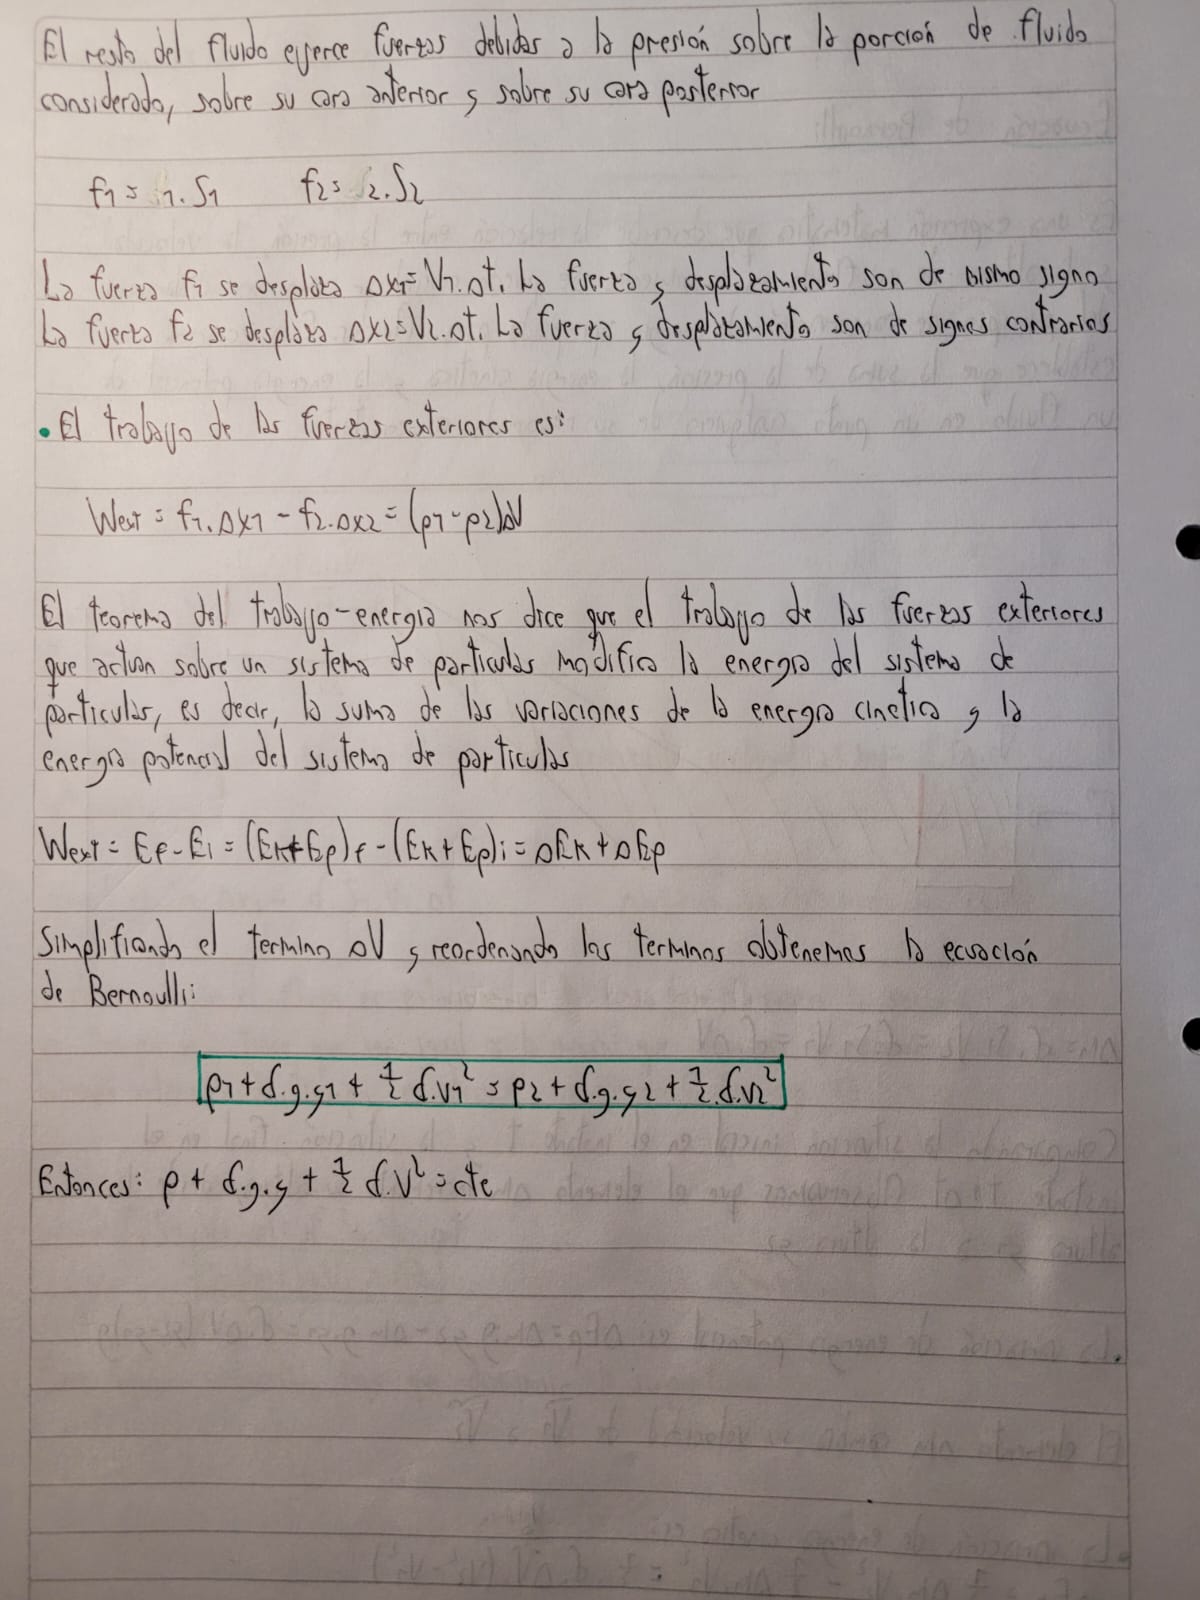 El resto del fluido ejerce fuerzas debidas a la presión sobre la porción de fluido
considerado, sobre su cara anterior y sobre su cara posterior
f1 = 1.S1 f2 = 2.S2
La fuerza f1 se desplaza Δx1=V1.Δt. La fuerza y desplazamiento son de mismo signo
La fuerza f2 se desplaza Δx2=V2.Δt. La fuerza y desplazamiento son de signos contrarios
• El trabajo de las fuerzas exteriores es:
West = f1.Δx1 - f2.Δx2 = (p1-p2)ΔV
El teorema del trabajo-energia nos dice que el trabajo de las fuerzas exteriores
que actuan sobre un sistema de particulas modifica la energia del sistema de
particulas, es decir, la suma de las variaciones de la energia cinetica y la
energia potencial del sistema de particulas
Wext = Ef - Ei = (Ek+Ep)f - (Ek+Ep)i = ΔEk + ΔEp
Simplificando el termino ΔV y reordenando los terminos obtenemos la ecuación
de Bernoulli:
p1 + d.g.y1 + 1/2 d.v1² = p2 + d.g.y2 + 1/2.d.v2²
Entonces: p + d.g.y + 1/2 d.v² = cte